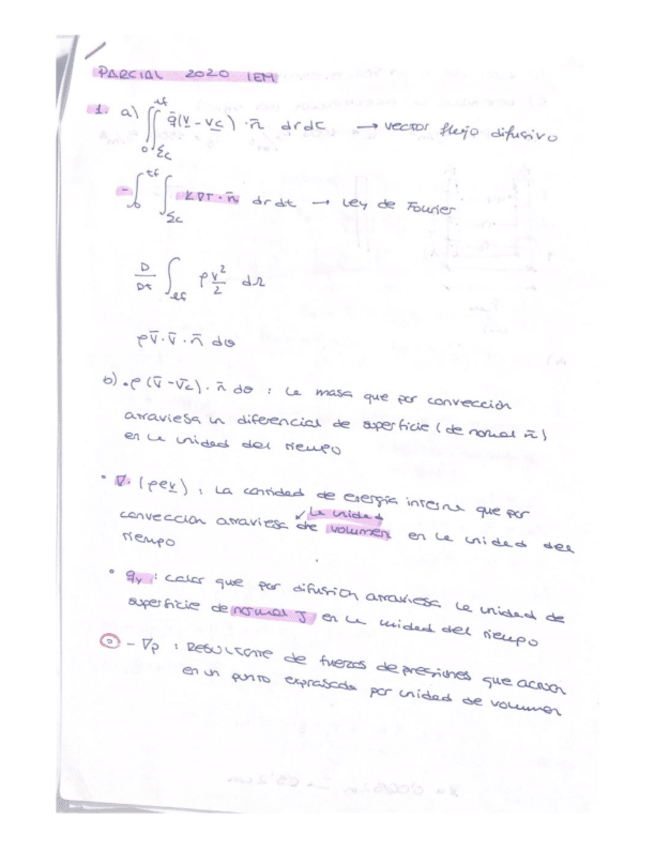 PARCIAL 2020 IEM
1. a) ∫₀^tf ∫_Σc q̄(v - vc) · n̄ dσdt → vector flujo difusivo
- ∫₀^tf ∫_Σc k∇T · n̄ dσdt → Ley de Fourier
D/Dt ∫ ρ v²/2 dΩ
ρ v̄ · v̄ · n̄ dσ
b) • ρ (v̄ - v̄c) · n̄ dσ : La masa que por convección
atraviesa un diferencial de superficie (de normal n̄)
en la unidad del tiempo
• ∇ · (ρev) : La cantidad de energía interna que por
la unidad
convección atraviesa de volumen en la unidad del
tiempo
• qy : calor que por difusión atraviesa la unidad de
superficie de normal J en la unidad del tiempo
- ∇p : Resultante de fuerzas de presiones que actúan
en un punto expresada por unidad de volumen